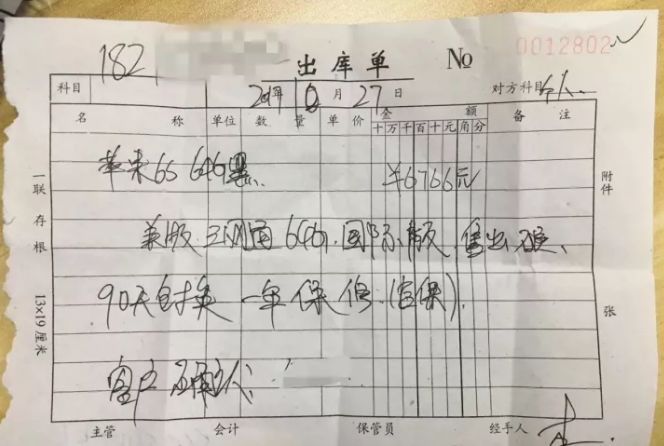 182
出库单 № 0012802
科目 年 月 27 日 对方科目
名称 单位 数量 单价 金额 备注
十万千百十元角分
苹果6S 64G黑 ¥6766元
美版三网通64G.国际版 售出
90天包换 一年保修.(官保).
客户确认
主管 会计 保管员 经手人
一联存根 13×19厘米
附件 张